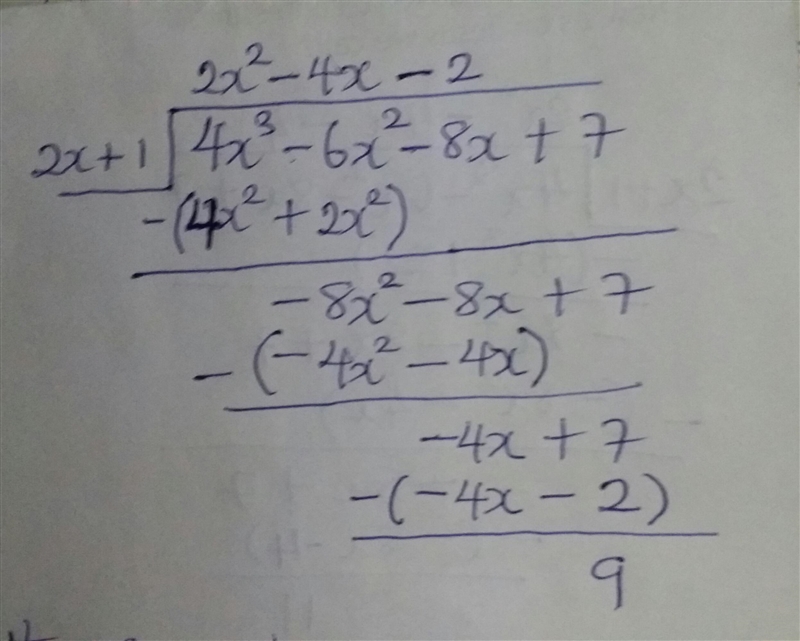 2x² - 4x - 2
2x + 1 | 4x³ - 6x² - 8x + 7
-(4x² + 2x²)
-8x² - 8x + 7
-(-4x² - 4x)
-4x + 7
-(-4x - 2)
9